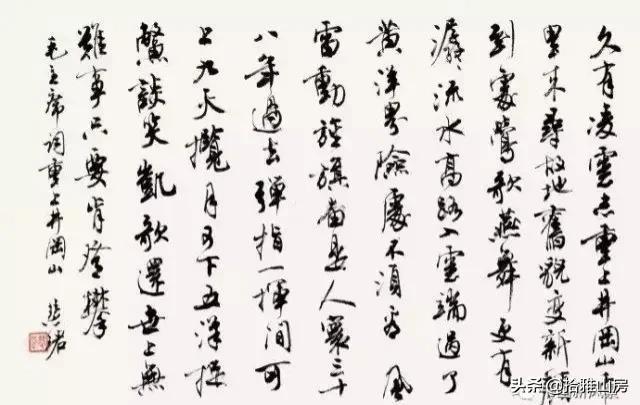 久有凌雲志重上井岡山千
里来尋故地舊貌變新顔
到處鶯歌燕舞更有
潺々流水高路入雲端過了
黄洋界險處不須看風
雷動旌旗奮是人寰三十
八年過去彈指一揮間可
上九天攬月可下五洋捉
鱉談笑凱歌還世上無
難事只要肯登攀
毛主席詞重上井岡山
头条@拾雅山房